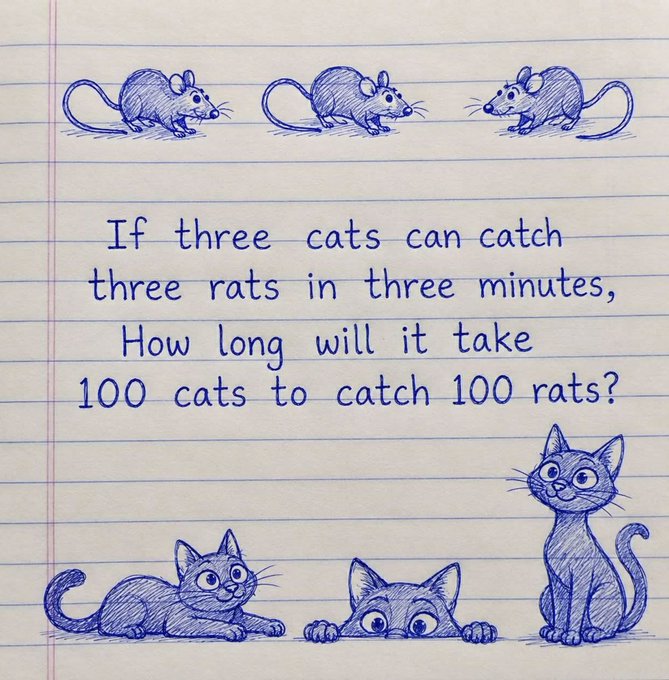 If three cats can catch
three rats in three minutes,
How long will it take
100 cats to catch 100 rats?